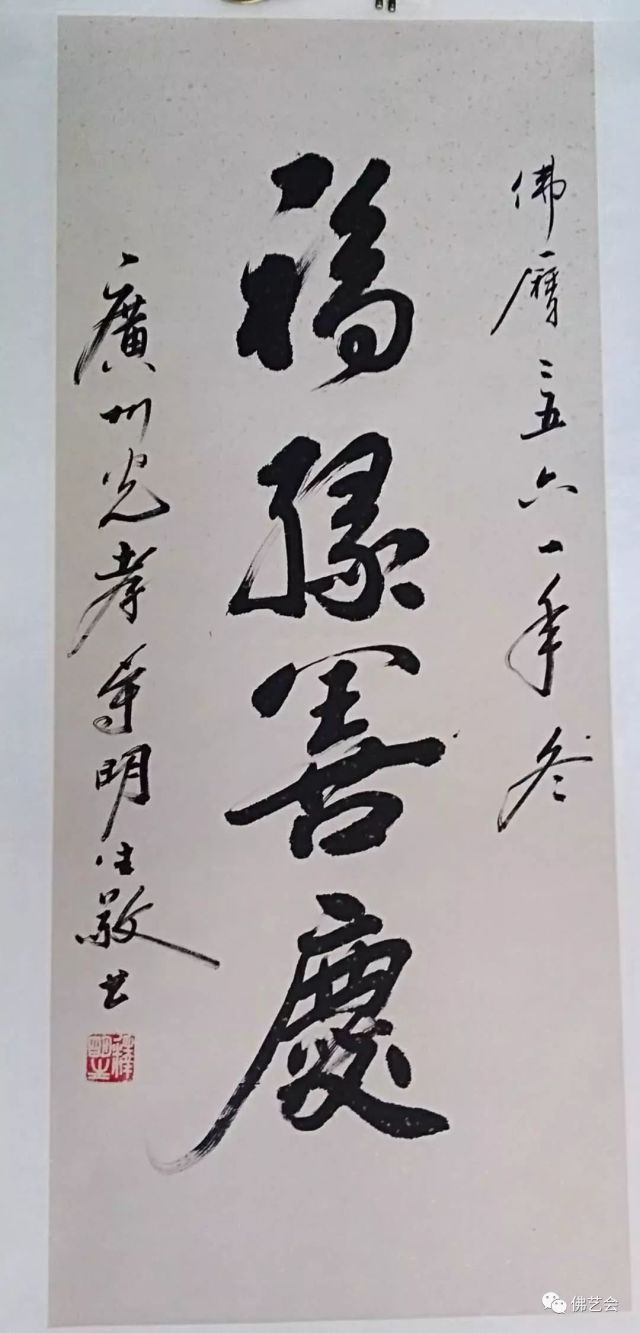 佛曆二五六一年冬
福緣善慶
廣州光孝寺明生敬书
釋明生
佛艺会